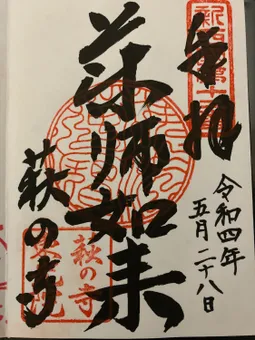 奉拝
令和四年
五月二十八日
薬師如来
萩の寺
萩の寺